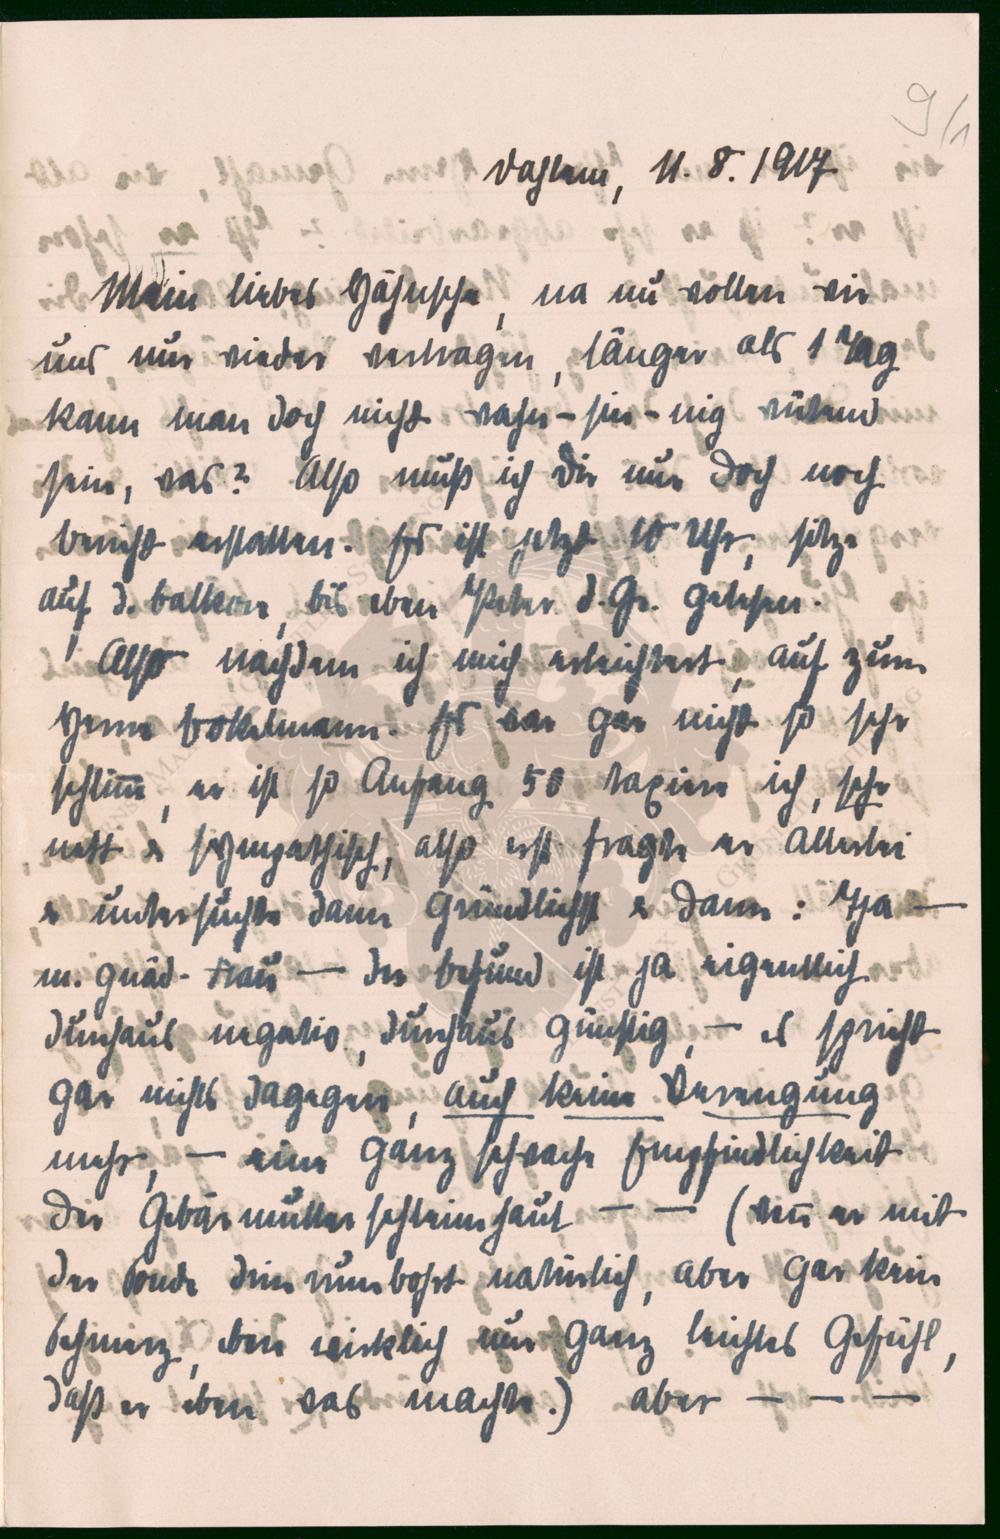 9/1
Dahlem, 11. 8. 1917
Mein liebes Hähnsche, na nu wollen wir
uns nur wieder vertragen, länger als 1 Tag
kann man doch nicht wahn-sin-nig wütend
sein, was? Also muß ich Dir nur doch noch
bericht erstatten. Es ist jetzt 10 Uhr, sitze
auf d. balkon, bis eben Peter d. Gr. gelesen.
Also nachdem ich mich erleichtert, auf zum
Herrn Bokelmann. Es war gar nicht so sehr
schlim̄, er ist so Anfang 50 taxiere ich, sehr
nett & sympathisch, also erst fragte er Allerlei
& untersuchte dann Gründlichst & dann: Tja —
m. gnäd. Frau — der befund ist ja eigentlich
durchaus negativ, durchaus günstig, — es spricht
gar nichts dagegen, auch keine Verengung
mehr, — eine ganz schwache Empfindlichkeit
der Gebärmutterschleimhaut — — (wen̄ er mit
der Sonde drin rumbohrt natürlich, aber gar kein
Schmerz, eben wirklich nur ganz leichtes Gefühl,
daß er eben was machte.) aber — — —